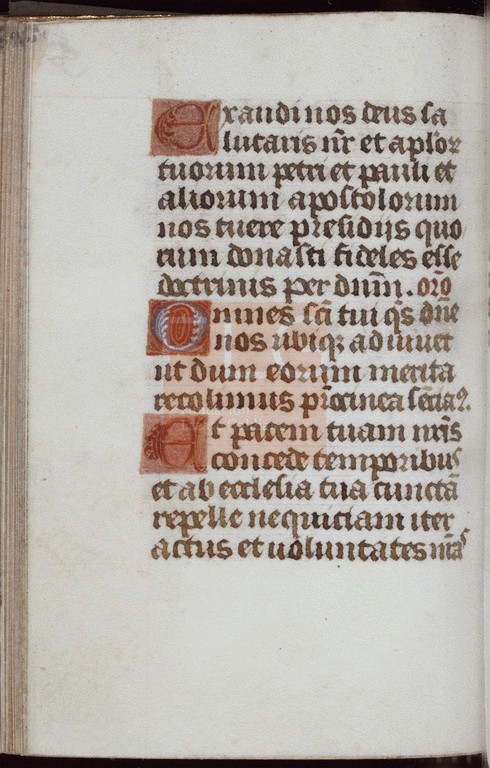 Exaudi nos deus sa
lutaris nr̄ et aplor̄
tuorum petri et pauli et
aliorum apostolorum
nos tuere presidijs quo
rum donasti fideles esse
doctrinis per dnm̄. oro
Omnes sc̄i tui qs̄ dn̄e
nos ubiqz adiuuet
ut dum eorum merita
recolimus
Et pacem tuam nr̄is
concede temporibus
et ab ecclesia tua cunctā
repelle nequiciam iter
actus et uoluntates nr̄as